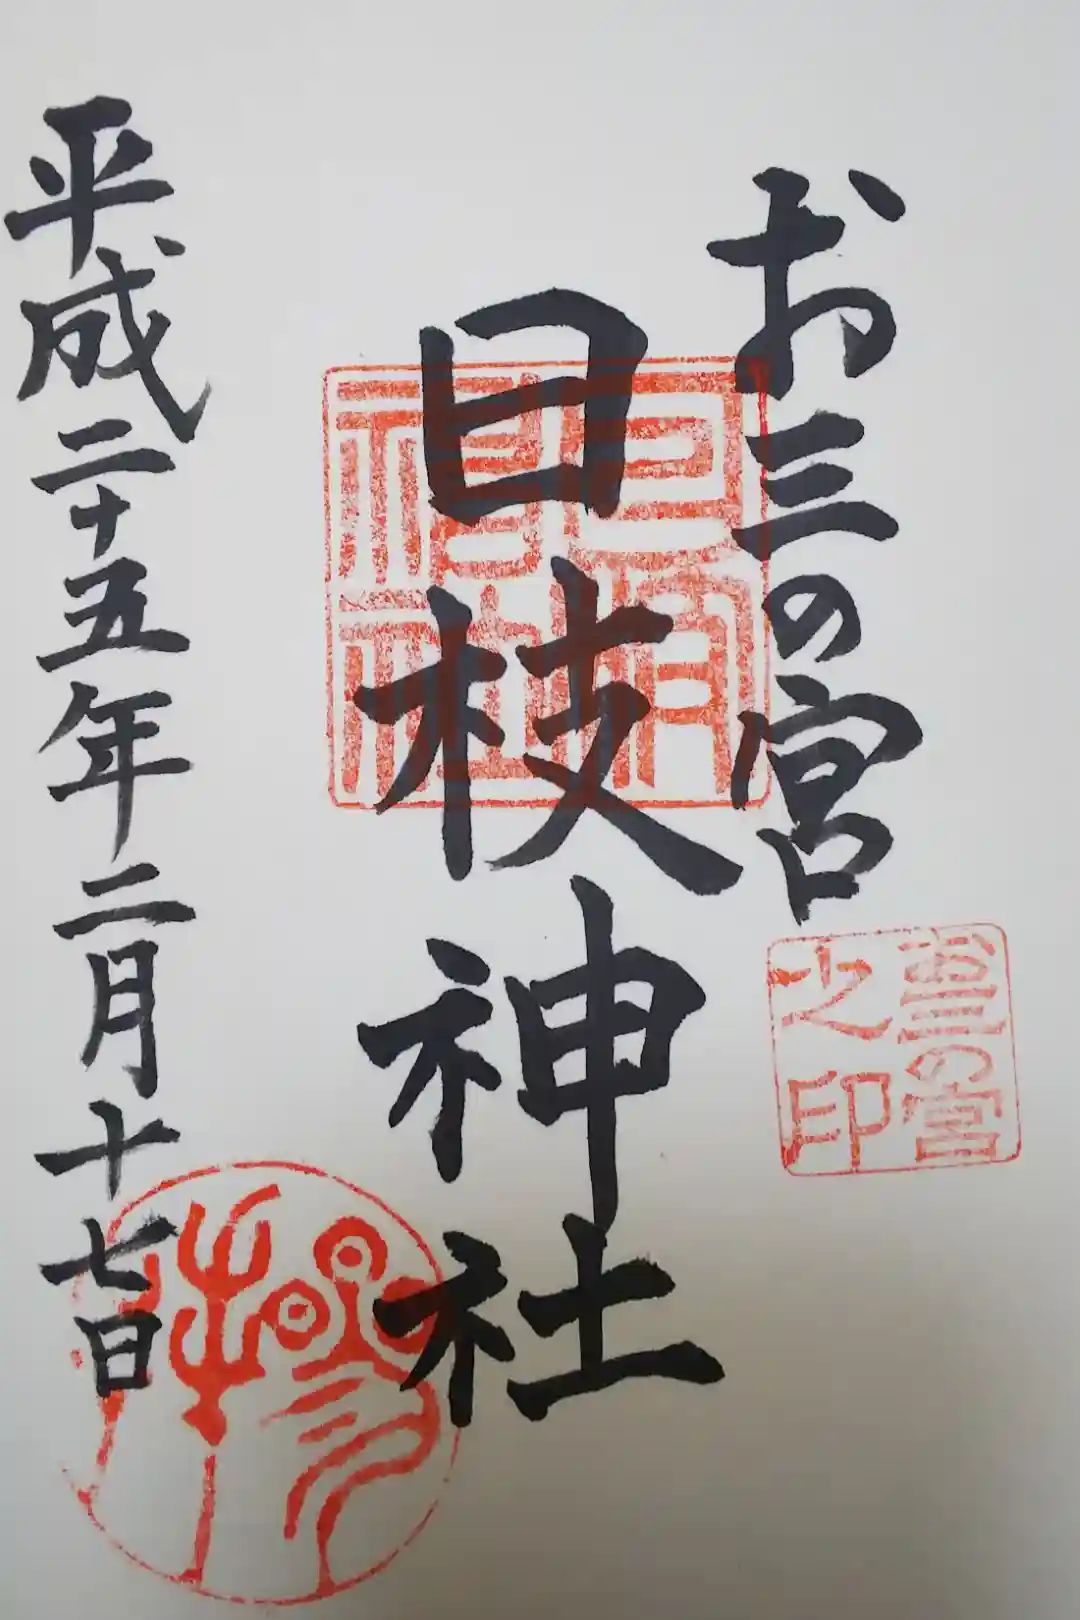 お三の宮
日枝神社
平成二十五年二月十七日
日枝
神社
お三の宮
之印